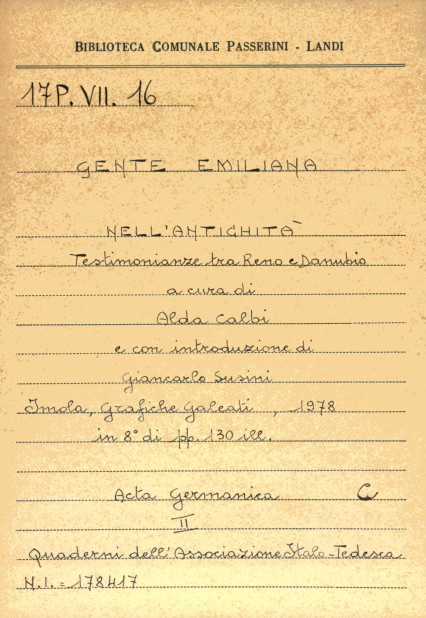 BIBLIOTECA COMUNALE PASSERINI - LANDI
17P. VII. 16
GENTE EMILIANA
NELL'ANTICHITÀ
Testimonianze tra Reno e Danubio
a cura di
Alda Calbi
e con introduzione di
Giancarlo Susini
Imola, Grafiche Galeati, 1978
in 8° di pp. 130 ill.
Acta Germanica C
II
Quaderni dell'Associazione Italo-Tedesca.
N.I.=178417